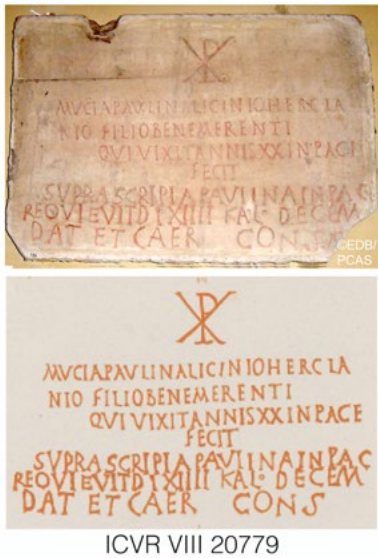 MVCIAPAVLINALICINIOHERCLA
NIO FILIOBENEMERENTI
QVIVIXITANNISXXINPACE
FECIT
SVPRASCRIPTAPAVLINAINPAC
REQVIEVITDIXIIII KAL· DECEM
DAT ET CAER CONS
©EDB/
PCAS
MVCIAPAVLINALICINIOHERCLA
NIO FILIOBENEMERENTI
QVIVIXITANNISXXINPACE
FECIT
SVPRASCRIPTAPAVLINAINPAC
REQVIEVITDIXIIII KAL· DECEM
DAT ET CAER CONS
ICVR VIII 20779